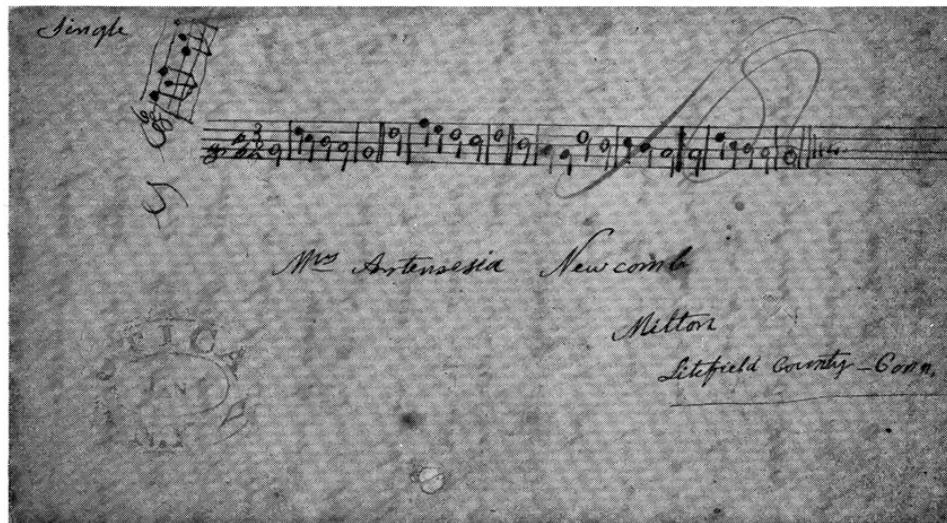 Single
Mrs Artemesia Newcomb
Milton
Litchfield County - Conn.
UTICA